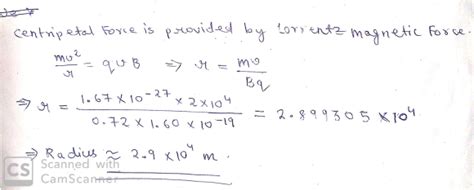 Centripetal Force is provided by lorrentz magnetic Force.
mv²/r = qvB ⇒ r = mv/Bq
⇒ r = 1.67 × 10⁻²⁷ × 2 × 10⁴ / 0.72 × 1.60 × 10⁻¹⁹ = 2.899305 × 10⁴
⇒ Radius ≈ 2.9 × 10⁴ m.
CS Scanned with
CamScanner